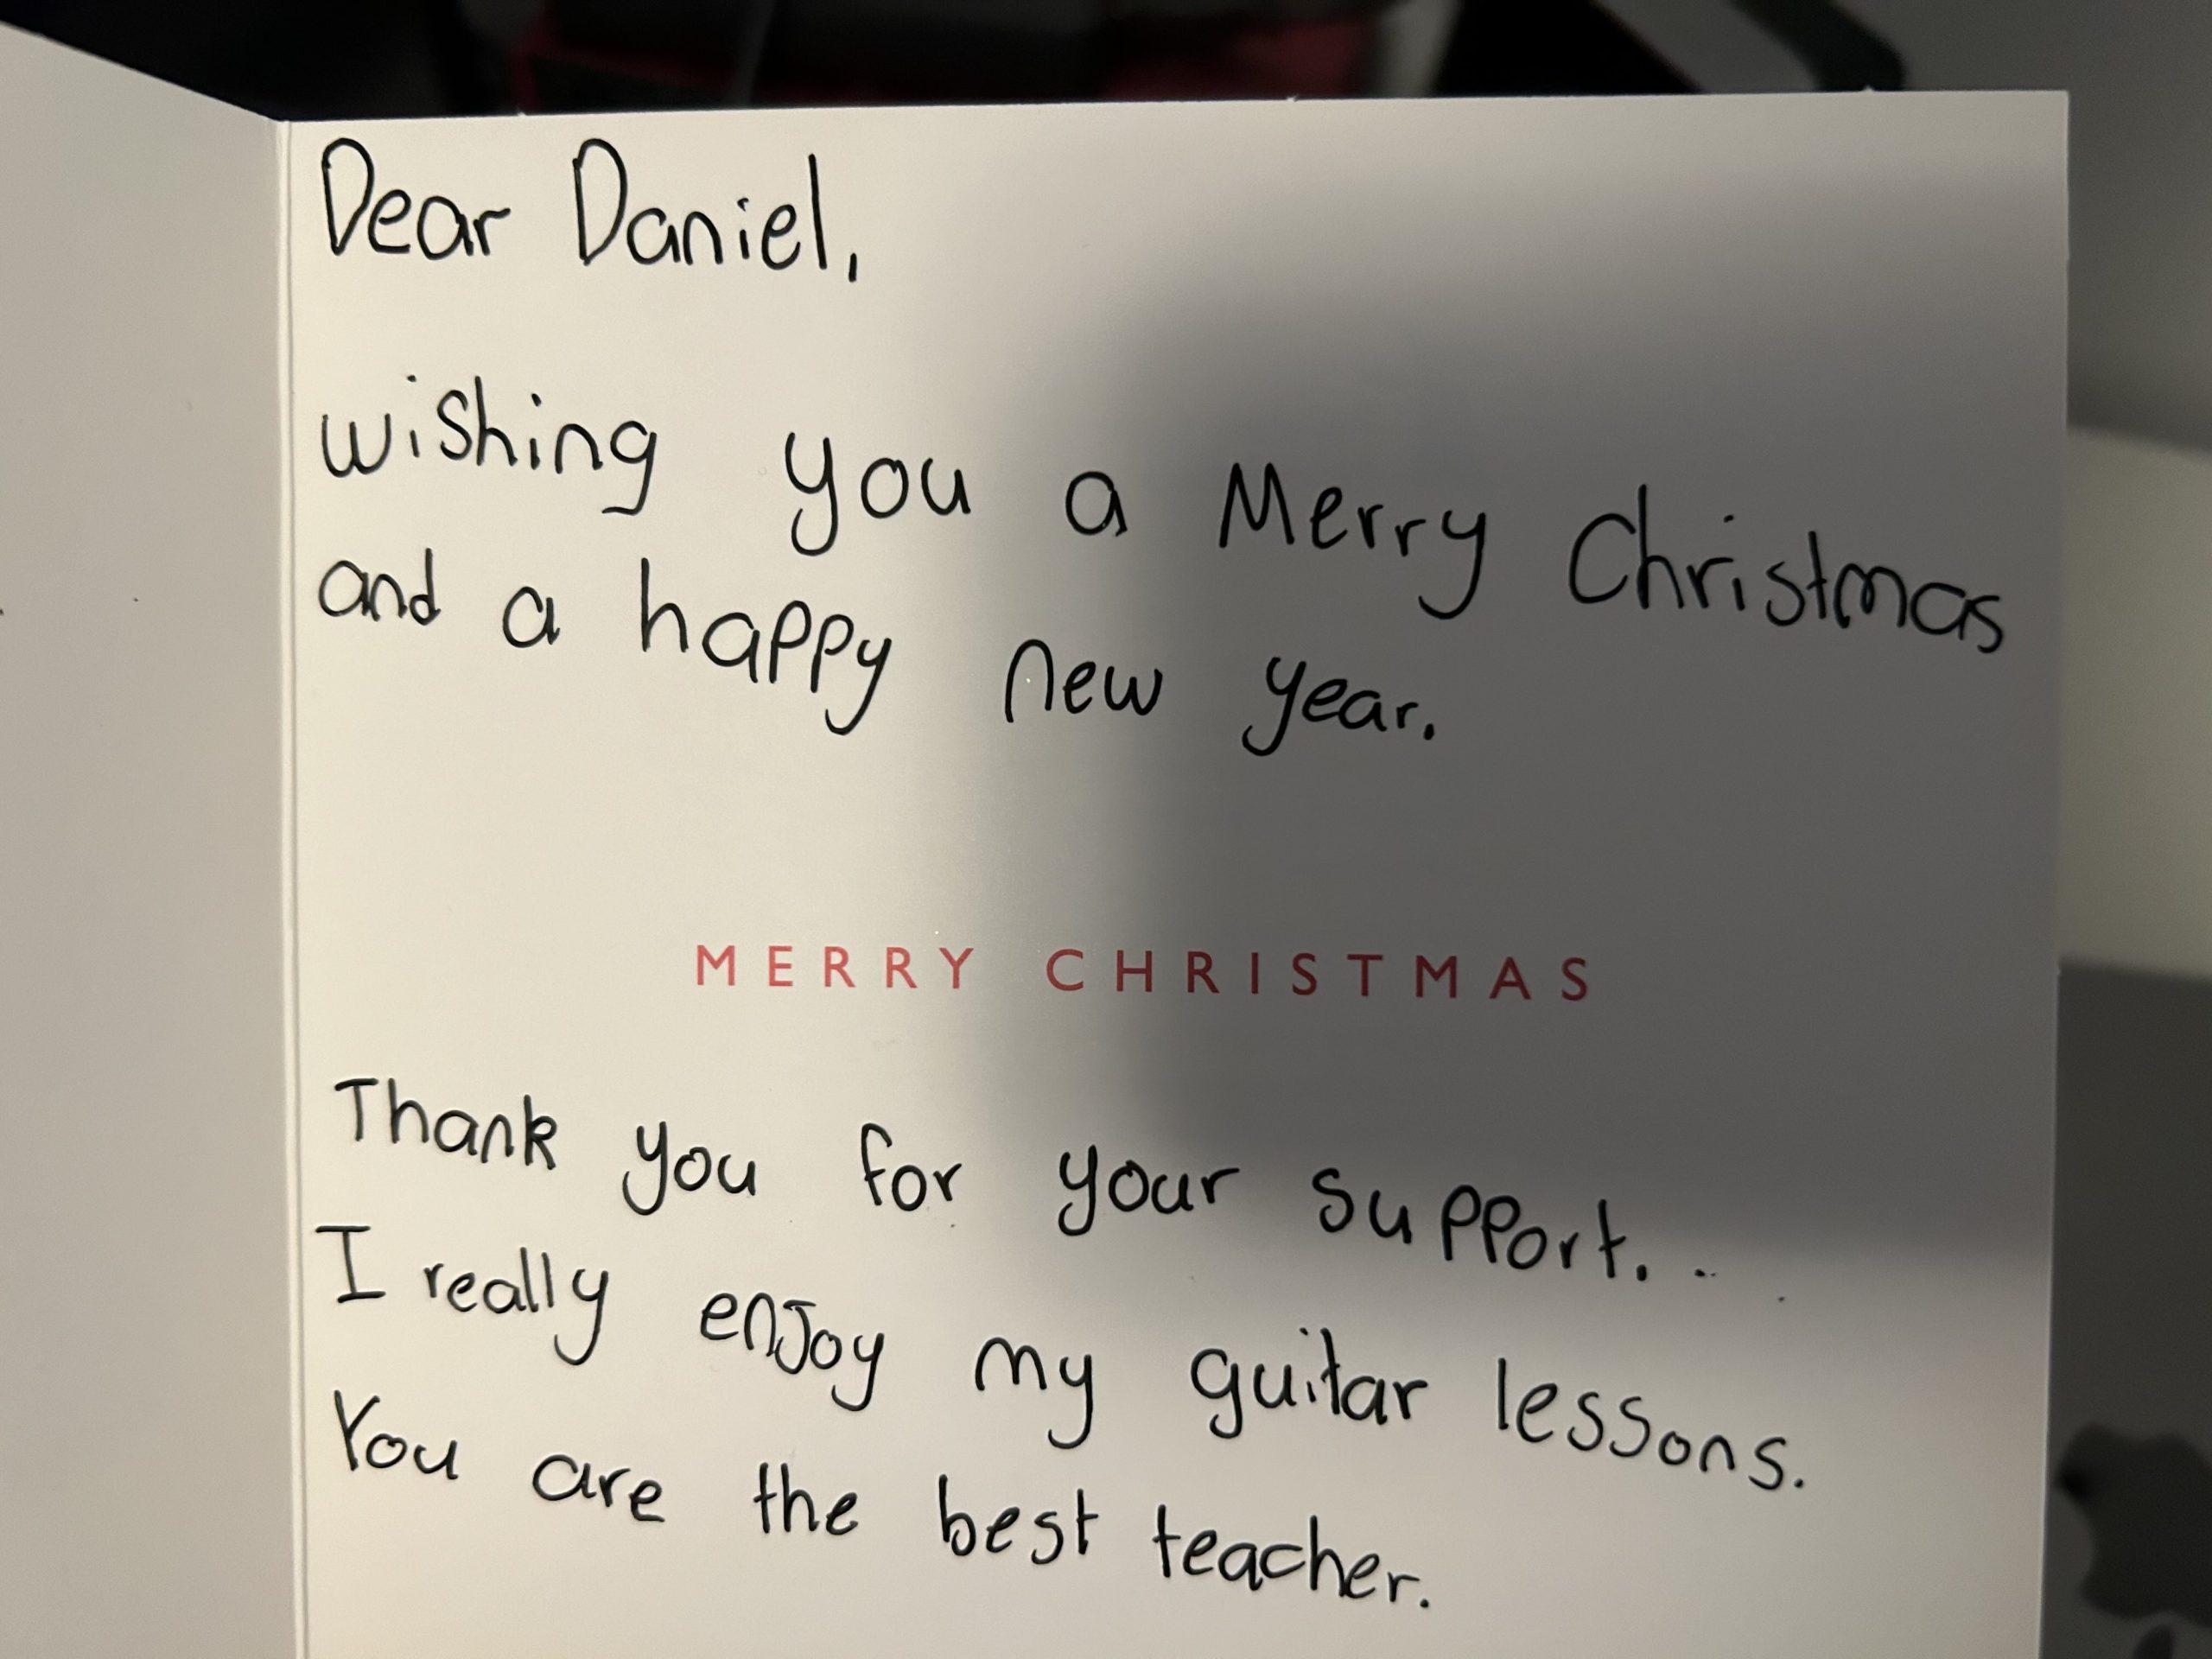 Dear Daniel,
wishing you a Merry Christmas
and a happy new year.
MERRY CHRISTMAS
Thank you for your support. ..
I really enjoy my guitar lessons.
You are the best teacher.